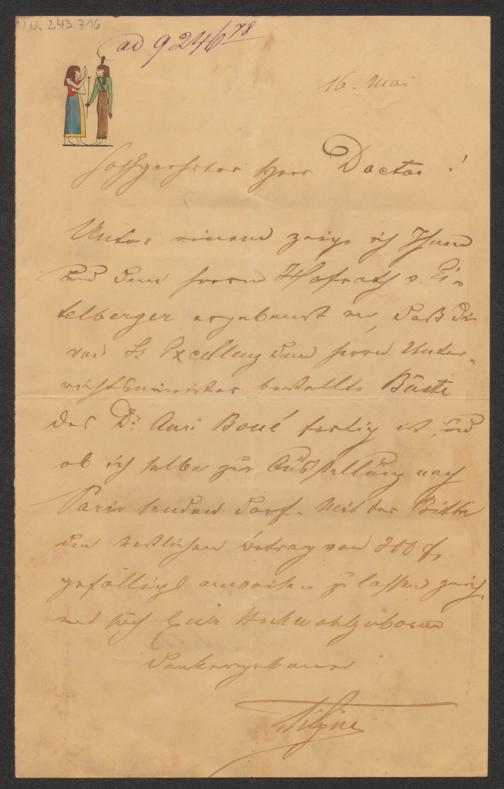 I.N. 243.716
ad 9246 78
16. Mai
Hochgeehrter Herr Doctor!
Unter einem zeige ich Ihnen
und dem Herrn Hofrath v. Ei-
telberger ergebenst an, daß die
von Sr Excellenz dem Herrn Unter-
richtsminister bestellte Büste
des Dr. Ami Boué fertig ist, und
ob ich selbe zur Ausstellung nach
Paris senden darf. Mit der Bitte
den restlichen Betrag von 200 f.
gefälligst anweisen zu lassen zeich-
net sich Euer Hochwohlgeboren
dankergebener
Tilgner